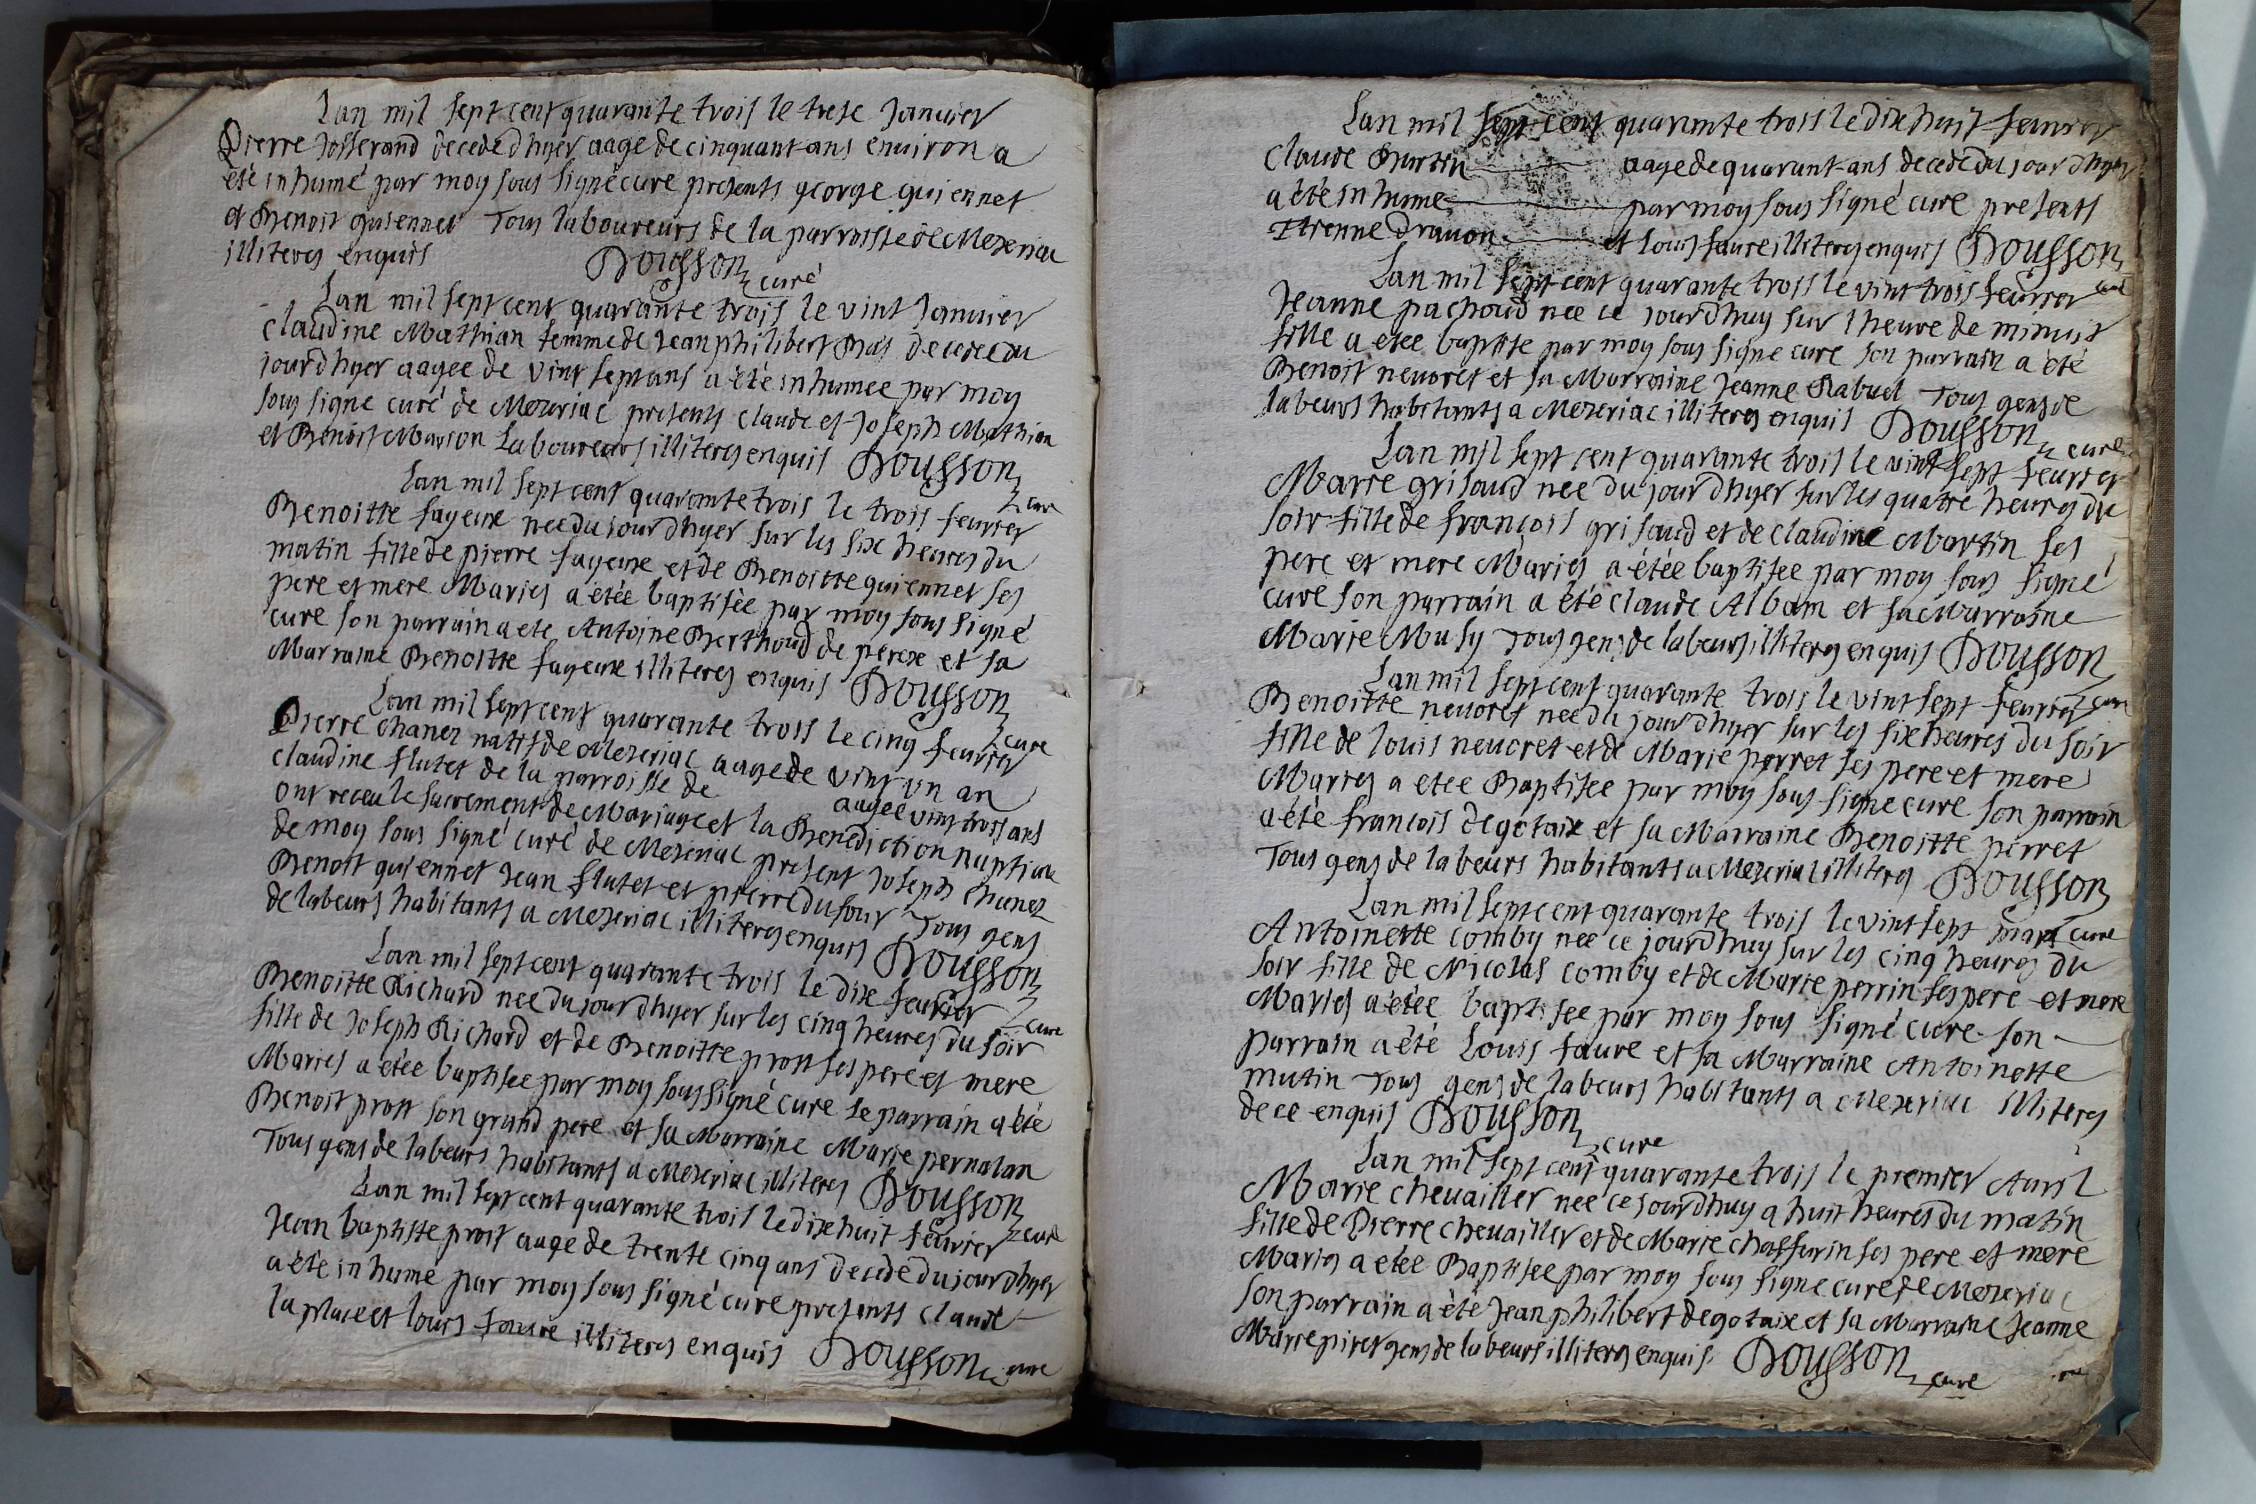 Lan mil sept cent quarante trois le trese Janvier
Pierre Josserand decede dhyer aage de cinquant ans environ a
été inhumé par moy sous signé curé presents george guiennet
et Benoit guiennet Tous laboureurs de la parroisse de Mezeriac
illiteres enquis Bousson curé
Lan mil sept cent quarante trois le vint Janvier
claudine Mathian femme de Jean philibert Bas decedee du
jourdhyer aagee de vint sept ans a été inhumee par moy
sous signe curé de Mezeriac presents Claude et Joseph Mathian
et Benoit Marion Laboureurs illiteres enquis Bousson
cure
Lan mil sept cent quarante trois le trois feurier
Benoitte fayeux nee du jourdhyer sur les six heures du
matin fille de pierre fayeux et de Benoitte guiennet ses
pere et mere Maries a étée baptisée par moy sous signé
cure son parrain a ete Antoine Berthoud de perex et sa
Marraine Benoitte fayeux illiteres enquis Bousson
cure
Lan mil sept cent quarante trois le cinq feurier
Pierre chanez natif de Mezeriac aage de vint un an
claudine flutet de la parroisse de aagee vint trois ans
ont receu le sacrement de Mariage et la Benediction nuptiale
de moy sous signé curé de Mezeriac present Joseph chanez
Benoit guiennet Jean flutet et pierre dufour Tous gens
de labeurs habitants a Mezeriac illiteres enquis Bousson
cure
Lan mil sept cent quarante trois le dix feurier
Benoitte Richard nee du jourdhyer sur les cinq heures du soir
fille de Joseph Richard et de Benoitte prost ses pere et mere
Maries a étée baptisee par moy sous signé cure le parrain a été
Benoit prost son grand pere et sa Marraine Marie pernalan
Tous gens de labeurs habitants a Mezeriac illiteres Bousson
cure
Lan mil sept cent quarante trois le dixhuit feurier
Jean baptiste prost aage de trente cinq ans decede du jourdhyer
a été inhumé par moy sous signé cure presents claude
la place et louis faure illiteres enquis Bousson cure
Lan mil sept cent quarante trois le dix huit feurier
Claude Burtin aage de quarant-ans decede du jourdhyer
a été inhume par moy sous signé cure presents
Etienne Dravon et louis faure illiteres enquis Bousson
cure
Lan mil sept cent quarante trois le vint trois feurier
Jeanne pachoud nee ce jourdhuy sur lheure de minuit
fille a etee baptise par moy sous signe cure son parrain a été
Benoit nevoret et sa Marraine Jeanne Rabuel Tous gens de
labeurs habitants a Mezeriac illiteres enquis Bousson
cure
Lan mil sept cent quarante trois le vint sept feurier
Marie grisaud nee du jourdhyer sur les quatre heures du
soir fille de françois grisaud et de claudine Martin ses
pere et mere Maries a étée baptisee par moy sous signé
cure son parrain a été claude Alban et sa Marraine
Marie Musy Tous gens de labeurs illiteres enquis Bousson
cure
Lan mil sept cent quarante trois le vint sept feurier
Benoitte nevoret nee du jourdhyer sur les six heures du soir
fille de louis nevoret et de Marie perret ses pere et mere
Maries a etee Baptisee par moy sous signe cure son parrain
a été francois degotaix et sa Marraine Benoitte perret
Tous gens de labeurs habitants a Mezeriac illiteres Bousson
cure
Lan mil sept cent quarante trois le vint sept mars
Antoinette comby nee ce jourdhuy sur les cinq heures du
soir fille de Nicolas comby et de Marie perrin ses pere et mere
Maries a étée baptisee par moy sous signé cure son
parrain a été Louis faure et sa Marraine Antoinette
mutin Tous gens de labeurs habitants a Mezeriac illiteres
de ce enquis Bousson cure
Lan mil sept cent quarante trois le premier Auril
Marie chevailler nee ce jourdhuy a huit heures du matin
fille de Pierre chevailler et de Marie chaffurin ses pere et mere
Maries a etee Baptisee par moy sous signe cure de Mezeriac
son parrain a été Jean philibert degotaix et sa Marraine Jeanne
Marie piret gens de labeurs illiteres enquis Bousson cure